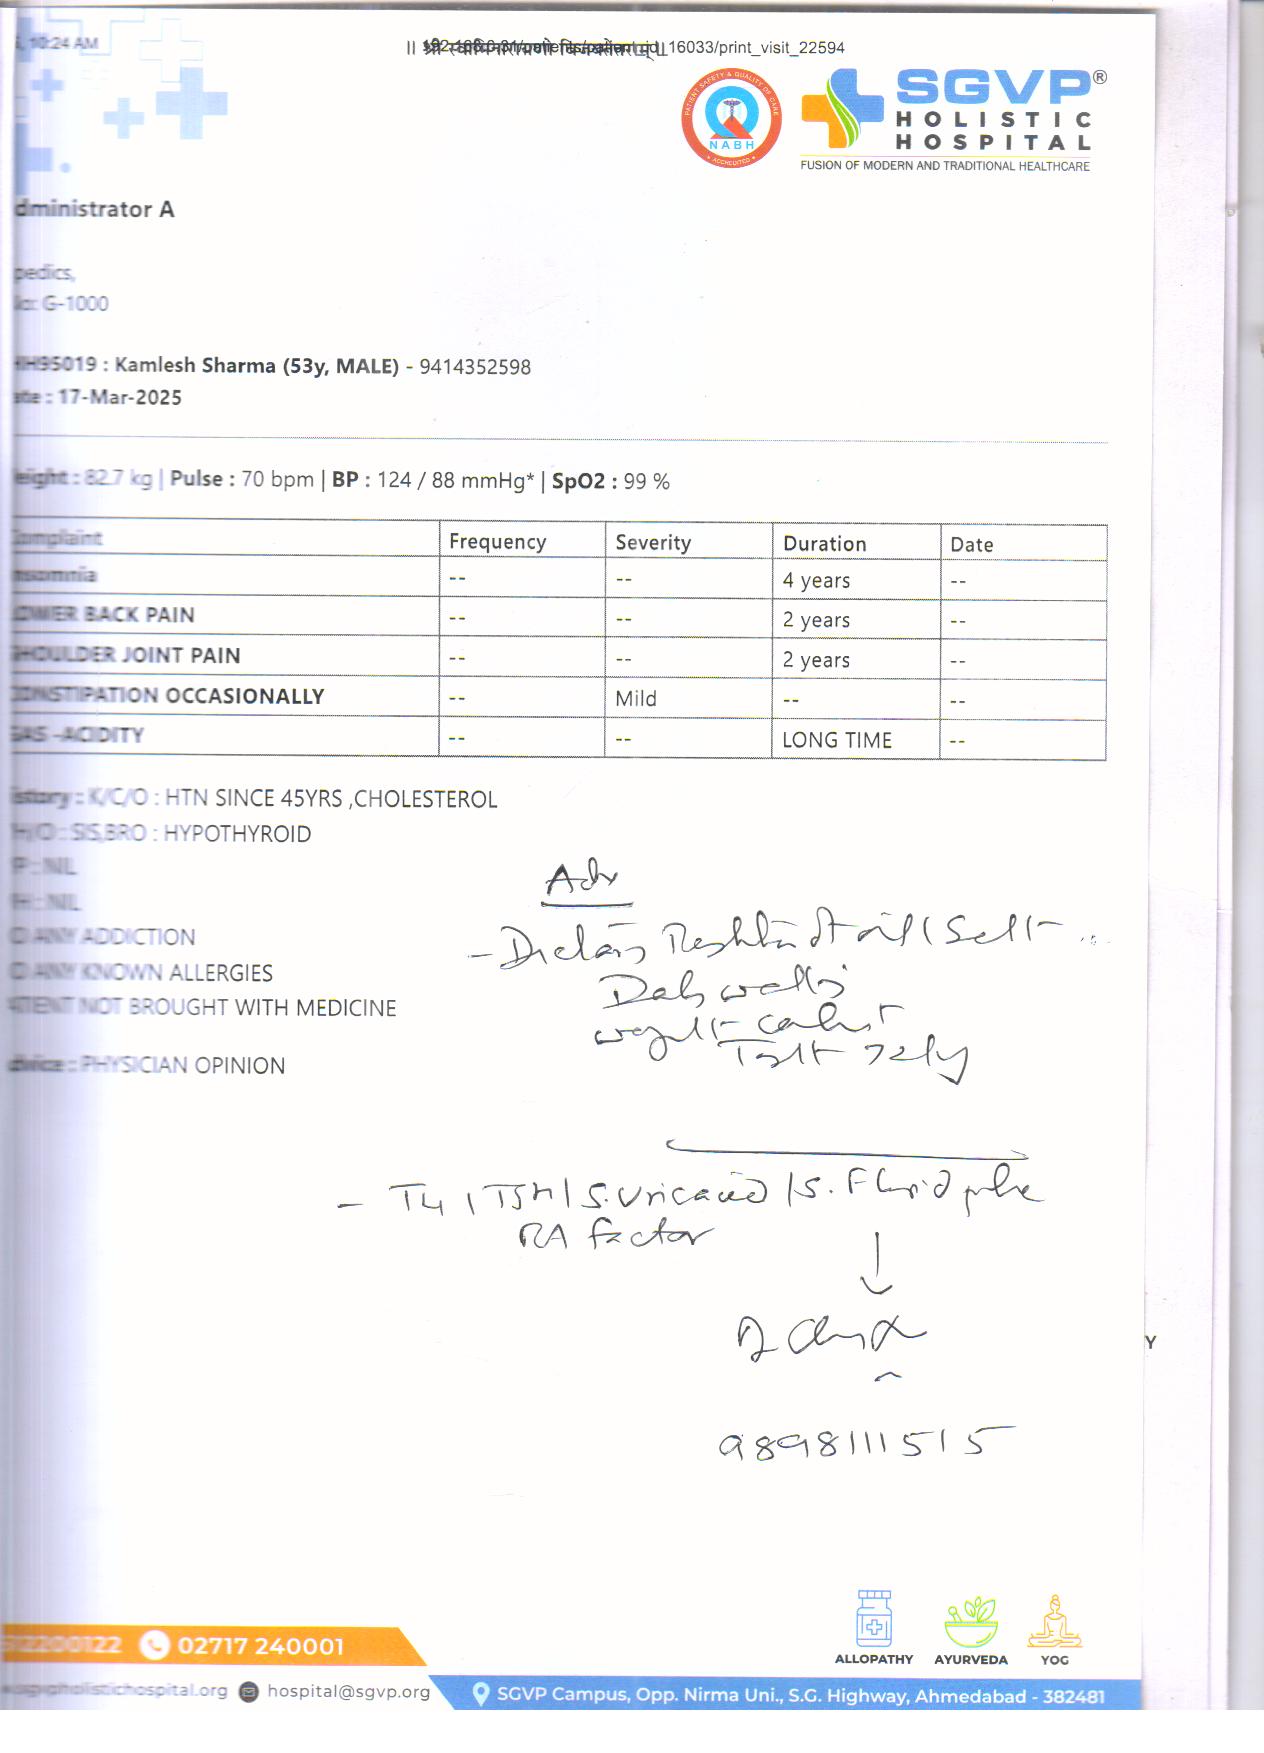 10:24 AM
16033/print_visit_22594
PATIENT SAFETY & QUALITY OF CARE
NABH
ACCREDITED
SGVP®
HOLISTIC
HOSPITAL
FUSION OF MODERN AND TRADITIONAL HEALTHCARE
dministrator A
pedics,
G-1000
95019 : Kamlesh Sharma (53y, MALE) - 9414352598
ate : 17-Mar-2025
eight : 82.7 kg | Pulse : 70 bpm | BP : 124 / 88 mmHg* | SpO2 : 99 %
omplaint Frequency Severity Duration Date
nsomnia -- -- 4 years --
OWER BACK PAIN -- -- 2 years --
SHOULDER JOINT PAIN -- -- 2 years --
ONSTIPATION OCCASIONALLY -- Mild -- --
GAS -ACIDITY -- -- LONG TIME --
istory : K/C/O : HTN SINCE 45YRS ,CHOLESTEROL
H/O : SIS,BRO : HYPOTHYROID
P : NIL
H : NIL
O ANY ADDICTION
O ANY KNOWN ALLERGIES
ATIENT NOT BROUGHT WITH MEDICINE
dvice : PHYSICIAN OPINION
Adv
- Dietary
- T4 / TSH / S. Uric acid / S.
RA factor
9898111515
ALLOPATHY AYURVEDA YOG
02717 240001
hospital@sgvp.org
SGVP Campus, Opp. Nirma Uni., S.G. Highway, Ahmedabad - 382481
Y